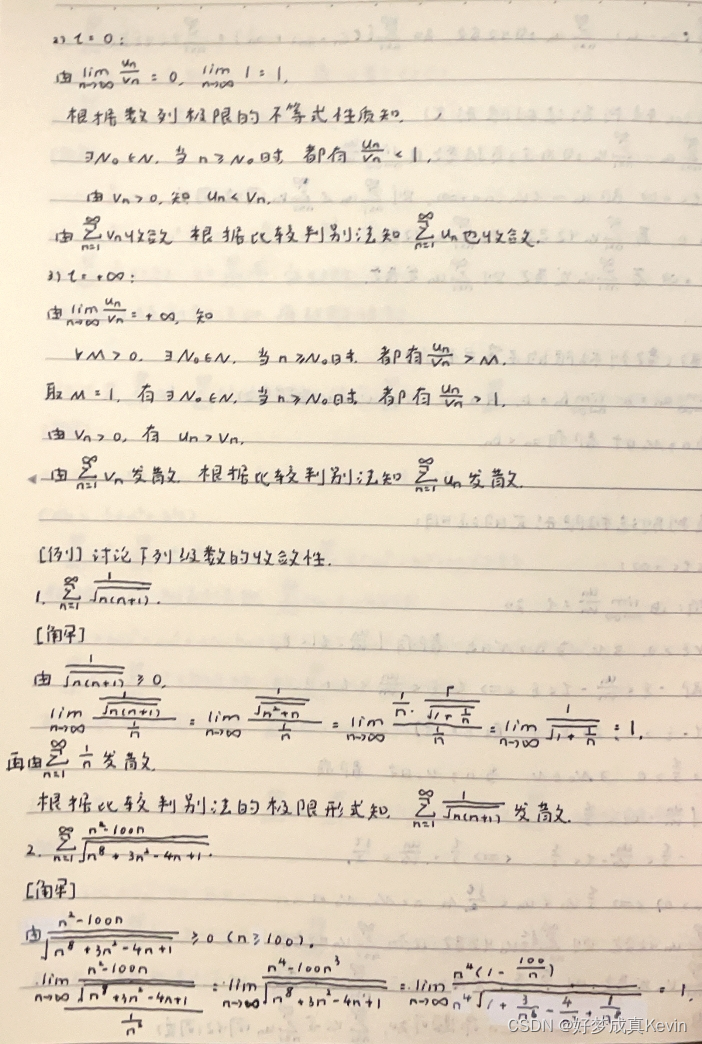 2) t = 0:
由 lim_{n→∞} u_n/v_n = 0, lim_{n→∞} 1 = 1,
根据数列极限的不等式性质知,
∃N₀∈N, 当 n ≥ N₀时, 都有 u_n/v_n < 1,
由 v_n > 0, 知 u_n < v_n.
由 ∑_{n=1}^{∞} v_n 收敛, 根据比较判别法知 ∑_{n=1}^{∞} u_n 也收敛.
3) t = +∞:
由 lim_{n→∞} u_n/v_n = +∞, 知
∀M > 0, ∃N₀∈N, 当 n ≥ N₀时, 都有 u_n/v_n > M.
取 M = 1, 有 ∃N₀∈N, 当 n ≥ N₀时, 都有 u_n/v_n > 1.
由 v_n > 0, 有 u_n > v_n.
由 ∑_{n=1}^{∞} v_n 发散, 根据比较判别法知 ∑_{n=1}^{∞} u_n 发散.
[例] 讨论下列级数的收敛性.
1. ∑_{n=1}^{∞} 1/√(n(n+1)).
[解]
由 1/√(n(n+1)) ≥ 0,
lim_{n→∞} (1/√(n(n+1)))/(1/n) = lim_{n→∞} (1/√(n²+n))/(1/n) = lim_{n→∞} (1/n · 1/√(1+1/n))/(1/n) = lim_{n→∞} 1/√(1+1/n) = 1,
再由 ∑_{n=1}^{∞} 1/n 发散,
根据比较判别法的极限形式知, ∑_{n=1}^{∞} 1/√(n(n+1)) 发散.
2. ∑_{n=1}^{∞} (n²-100n)/√(n⁸+3n²-4n+1).
[解]
由 (n²-100n)/√(n⁸+3n²-4n+1) ≥ 0 (n ≥ 100),
lim_{n→∞} ((n²-100n)/√(n⁸+3n²-4n+1))/(1/n²) = lim_{n→∞} (n⁴-100n³)/√(n⁸+3n²-4n+1) = lim_{n→∞} n⁴(1-100/n)/(n⁴√(1+3/n⁶-4/n⁷+1/n⁸)) = 1,
CSDN @好梦成真Kevin